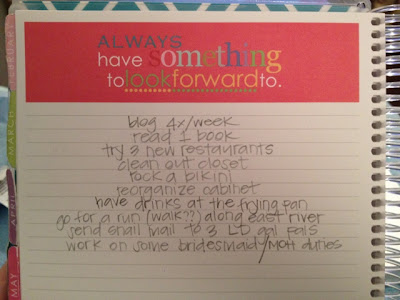 ALWAYS
have something
to look forward to.
blog 4x/week
read 1 book
try 3 new restaurants
clean out closet
rock a bikini
reorganize cabinet
have drinks at the frying pan
go for a run (walk??) along east river
send snail mail to 3 LD gal pals
work on some bridesmaid/MOH duties
MARCH
MAY